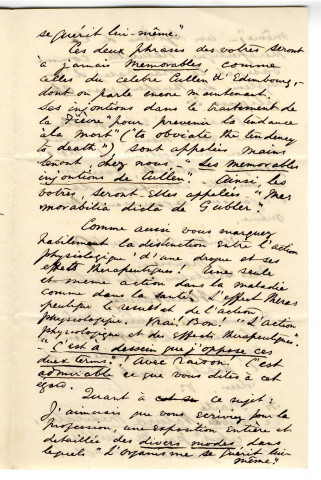 se guérit lui-même."
Ces deux phrases des votres seront
à jamais Memorables comme
celles du celebre Cullen d'Edimbourg,-
dont on parle encore maintenant.
Ses injontions dans le traitement de
la Fièvre "pour prevenir la tendance
à la mort" ("to obviate the tendency
to death") sont appelés main
tenant, chez nous, - "Les memorables
injontions de Cullen". Ainsi les
votres seront elles appelées "Me-
morabilia dicta de Gubler."
Comme aussi vous marquez
habilement la distinction entre l'action
physiologique d'une drogue et ses
effets therapeutiques! Une seule
et meme action dans la maladie
comme dans la santé. L'effect thera
peutique le resultat de l'action
physiologique. Vrai! Bon! "L'action
physiologique et des effects therapeutiques.
"C'est à dessein que j'oppose ces
deux termes." (Avec raison) C'est
admirable ce que vous dites à cet
égard.
Quant à ce sujet:
J'aimerais que vous écriviez pour la
Profession, une exposition entière et
detaillée des divers modes dans
lequels "L'organisme se guérit lui-
même."